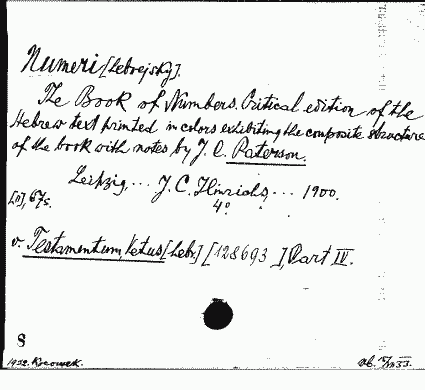 Numeri [hebrejský].
The Book of Numbers. Critical edition of the
Hebrew text printed in colors exhibiting the composite structure
of the book with notes by J. A. Paterson.
Leipzig, ... J. C. Hinrichs, ... 1900.
4°
[II], 67 s.
v. Testamentum, Vetus [hebr.] [128693], Part IV.
8
1952.